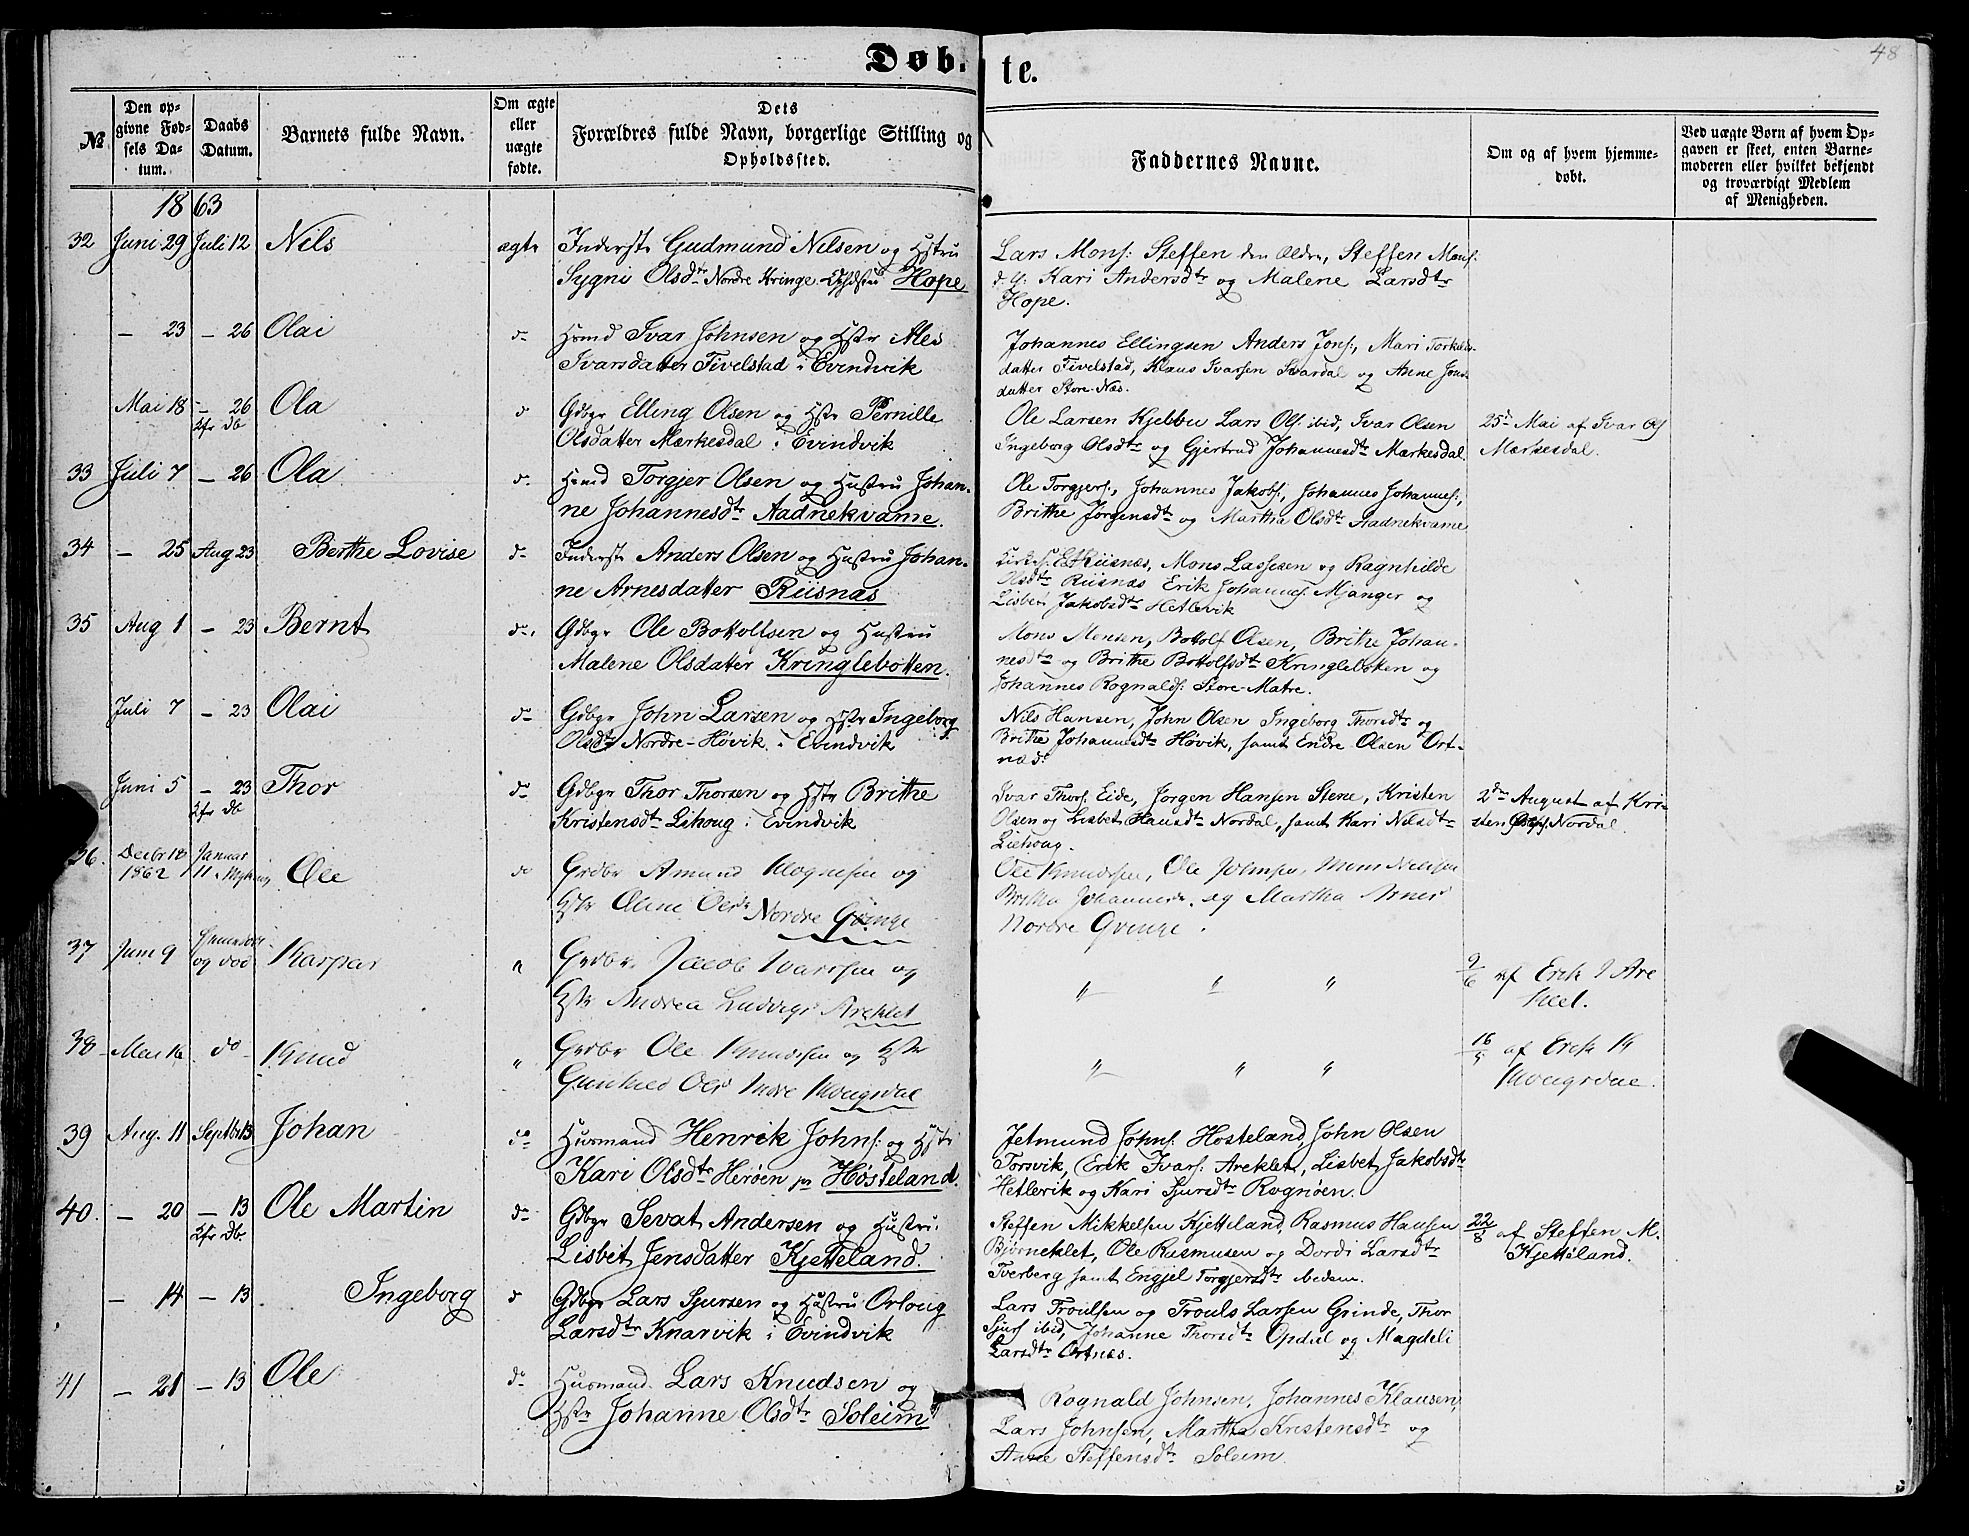 48
Døb-te.
№
Den op-
givne Fød-
sels Da-
tum.
Daabs
Datum.
Barnets fulde Navn.
Om ægte
eller
uægte
fødte.
Dets
Forældres fulde Navn, borgerlige Stilling og
Opholdssted.
Faddernes Navne.
Om og af hvem hjemme-
døbt.
Ved uægte Børn af hvem Op-
gaven er skeet, enten Barne-
moderen eller hvilket bekjendt
og troværdigt Medlem
af Menigheden.
1863
32 Juni 29 Juli 12 Nils ægte Inderste Gudmund Nilsen og Hstru
Sygni Olsdtr Nordre Hope
Lars Mons: Steffen den Eldre, Steffen Mons:
d. y. Kari Andersdtr og Malene Larsdtr
Hope.
- 23 - 26 Olai do Hsmd Ivar Johnsen og Hstr Ales
Ivarsdatter Fivelstad i Evindvik
Johannes Ellingsen Anders Jons:, Mari Torkels-
datter Fivelstad, Klaus Ivarsen Svardal og Anne Jons-
datter Store-Næs.
Mai 18 - 26 Ola do Gdbgr Elling Olsen og Hstr Pernille
2fr db
Olsdatter Mærkesdal i Evindvik
Ole Larsen Kjebbu Lars Ols: ibid, Ivar Olsen
Ingeborg Olsdtr og Gjertrud Johannesdtr Mærkesdal.
25de Mai af Ivar Ols
Mærkesdal.
33 Juli 7 - 26 Ola do Hsmd Torgjer Olsen og Hustru Johan-
ne Johannesdtr Aadnekvame.
Ole Torgjers:, Johannes Jakobs:, Johannes Johannes:,
Brithe Jørgensdtr og Martha Olsdtr Aadnekvame
34 - 25 Aug 23 Berthe Lovise do Inderste Anders Olsen og Hustru Johan-
ne Arnesdatter Riisnæs
Riisnæs, Mons Lassesen og Ragnhilde
Olsdtr Riisnæs Erik Johannes: Mjanger og
Lisbet Jakobsdtr Hetlevik
35 Aug 1 - 23 Bernt do Gdbgr Ole Bottolfsen og Hustru
Malene Olsdatter Kringlebotten.
Mons Monsen, Bottolf Olsen, Brithe Johan-
nesdtr og Brithe Bottolfsdtr Kringleboten og
Johannes Rognalds: Store-Matre.
Juli 7 - 23 Olai do Gdbgr John Larsen og Hstr Ingeborg
Olsdtr Nordre-Høvik i Evindvik
Nils Hansen, John Olsen Ingeborg Thorsdtr og
Brithe Johannesdtr Høvik, samt Endre Olsen Ort-
næs.
Juni 5 - 23 Thor do Gdbgr Thor Thorsen og Hstr Brithe
2fr db
Kristensdtr Lihoug i Evindvik
Ivar Thors: Eide, Jørgen Hansen Stene, Kristen
Olsen og Lisbet Hansdtr Nordal, samt Kari Nilsdtr
Liehoug.
2den August af Kri-
sten Ols: Nordal.
36. Decbr 18 Januar
1862 11 Ole do Grdbr Amund Mognesen og
Hstr Oline Olsdr Nordre Gringe
Ole Knudsen, Ole Johnsen, Mons Nielsen
Britha Johannesdr. og Martha Arnesd
Nordre Gringe.
37 Juni 9 og død Kaspar " Grdbr. Jacob Ivarsen og
Hstr Andrea Ludvigsd Areklet
" " "
9/6 af Erik I Are
klet.
38 Mai 16. do Knud " Grdbr Ole Knudsen og Hstr
Gunhild Olsd Indre Kvingedal
" " "
16/5 af Erik K
39 Aug. 11 Septbr 13 Johan do Husmand Henrik Johns: og Hstr
Kari Olsdtr Herøen pr Høsteland.
Jetmund Johns: Hosteland, John Olsen
Torsvik, Erik Ivars: Areklet, Lisbet Jakobsdtr
Hetlevik og Kari Sjursdtr Rognøen.
40. - 20 - 13 Ole Martin do Gdbgr Sevat Andersen og Hustru
2fr db.
Lisbet Jensdatter Kjetteland.
Steffen Mikkelsen Kjetteland, Rasmus Hansen
Bjørneklet, Ole Rasmusen og Dordi Larsdtr
Tverberg samt Engjel Torgjersdtr ibidem.
22/8 af Steffen M.
Kjetteland.
- 14 - 13 Ingeborg do Gdbgr Lars Sjursen og Hustru Orloug
Larsdtr Knarvik i Evindvik
Lars Troulsen og Trouls Larsen Grinde, Thor
Sjurs ibid, Johanne Thorsdtr Opdal og Magdeli
Larsdtr Ortnæs.
41 - 21 - 13 Ole do Husmand Lars Knudsen og
Hstr Johanne Olsdtr Soleim
Rognald Johnsen, Johannes Klausen,
Lars Johnsen, Martha Kristensdtr og
Anne Steffensdtr Soleim.